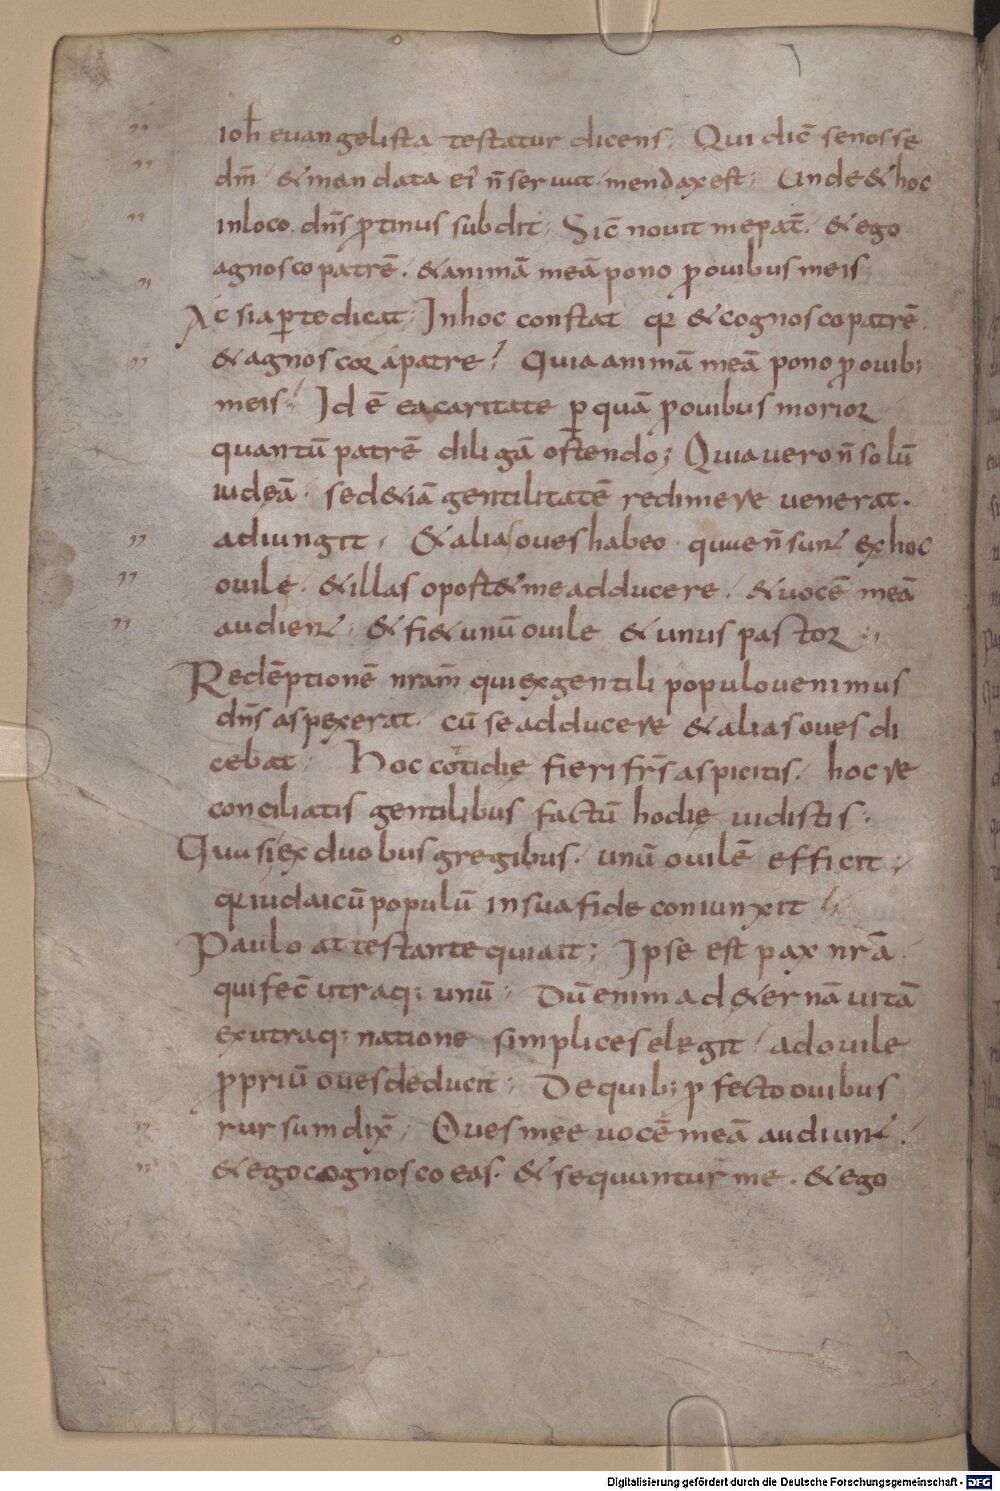 ioħ euangelista testatur dicens; Qui dic̄ se nosse
dm̄ / & mandata ei' n̄ seruat. mendax est; Unde & hoc
in loco. dn̄s ꝓtinus subdit; Sic̄ nouit me pat̄. & ego
agnosco patrē. & animā meā pono ꝓ ouibus meis;
Ac̄ si aꝑte dicat; In hoc constat qꝛ & cognosco patrē.
& agnoscoꝛ a patre; Quia animā meā pono ꝓ ouib;
meis; Id ē ea caritate ꝑ quā ꝓ ouibus morioꝛ
quantū patrē diligā ostendo; Quia uero n̄ solū
iudęā. sed &iā gentilitatē redimere uenerat.
adiungit; & alias oues habeo. quae n̄ sunt ex hoc
ouile. & illas oport& me adducere. & uocē meā
audient; & fi& unū ouile & unus pastoꝛ;
Redēptionē nrām̄ qui ex gentili populo uenimus
dn̄s aspexerat. cū se adducere & alias oues di
cebat; Hoc cotidię fieri fr̄s aspicitis. hoc re
conciliatis gentilibus factū hodię uidistis;
Quasi ex duobus gregibus. unū ouilē efficit;
qꝛ iudaicū populū in sua fide coniunxit;
Paulo attestante qui ait; Ipse est pax nr̄a
qui fec̄ utraq; unū; Dū enim ad &ernā uitā
ex utraq; natione simplices elegit. ad ouile
ꝓpriū oues deducit; De quib; ꝓfecto ouibus
rursum dix̄; Oues męe uocē meā audiunt.
& ego cognosco eas. & sequuntur me. & ego
Digitalisierung gefördert durch die Deutsche Forschungsgemeinschaft - DFG